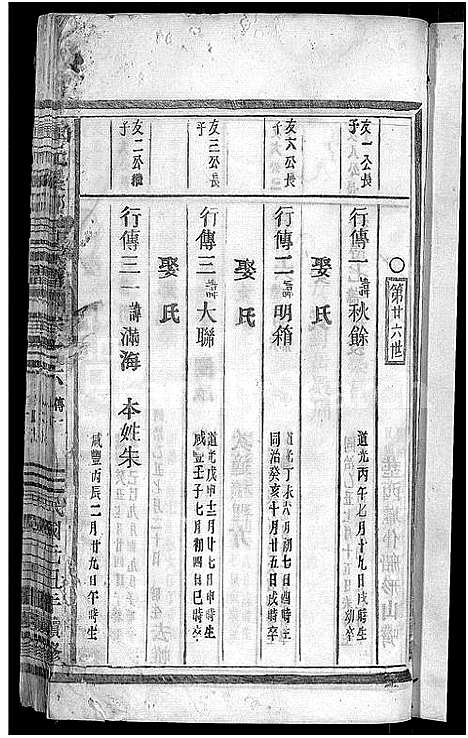 第廿六世
友一公長子
行傳一諱秋餘
道光丙午七月十九日戌時生
娶氏
友六公長子
行傳二諱明箱
道光丁未六月初七日四時生
同治癸亥十月廿五日戌時卒
娶氏
友三公長子
行傳三諱大聯
道光戊申十二月廿七日申時生
咸豐壬子七月初四日巳時卒
娶氏
友二公繼子
行傳三一諱滿海 本姓朱
咸豐丙辰二月廿九日午時生